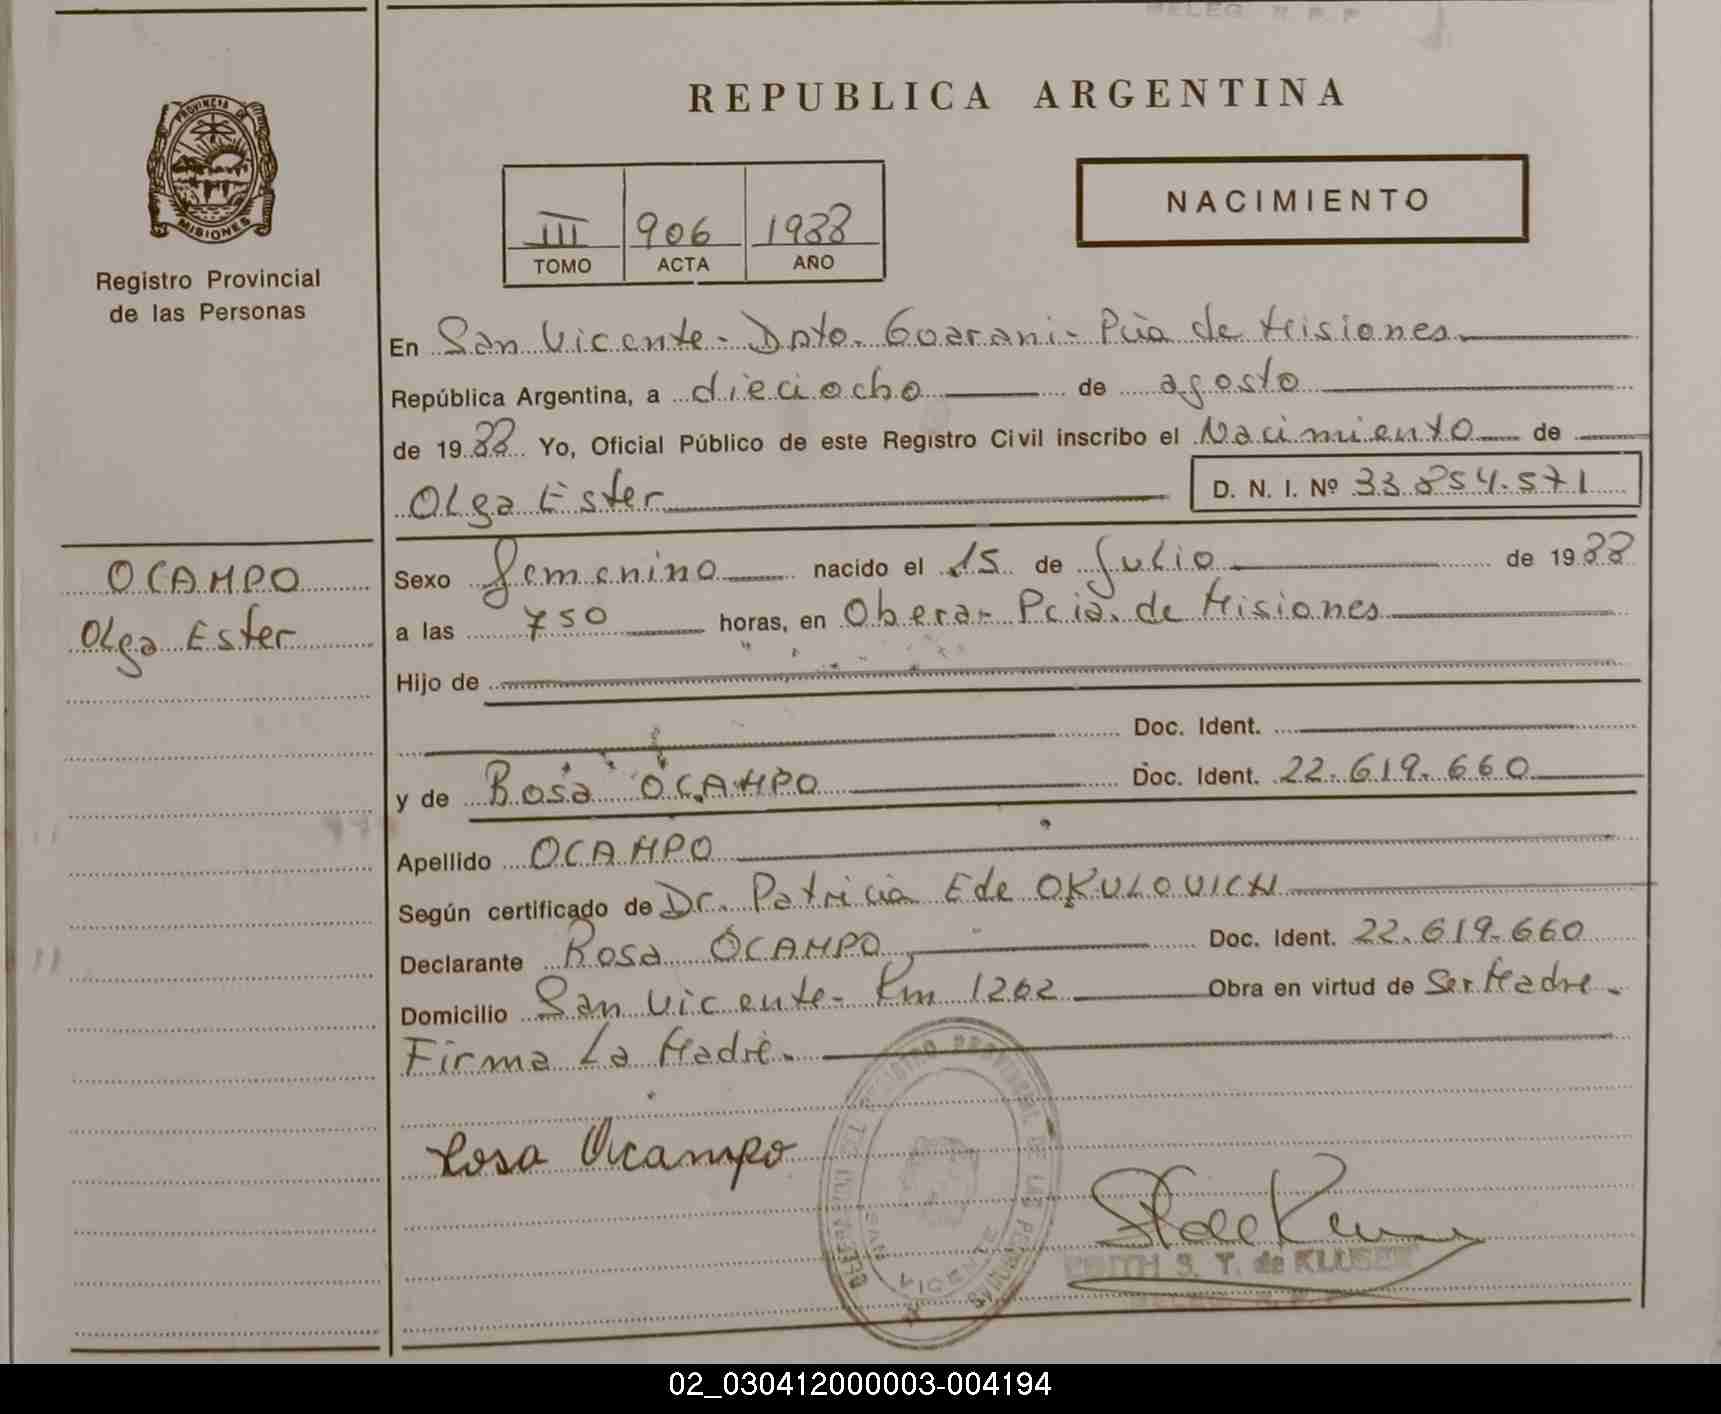 REPUBLICA ARGENTINA
PROVINCIA DE
MISIONES
Registro Provincial
de las Personas
III 906 1988
TOMO ACTA AÑO
NACIMIENTO
En San Vicente - Dpto. Guarani - Pcia de Misiones
República Argentina, a dieciocho de agosto
de 1988 Yo, Oficial Público de este Registro Civil inscribo el Nacimiento de
Olga Ester D. N. I. Nº 33.854.571
OCAMPO
Olga Ester
Sexo Femenino nacido el 15 de Julio de 1988
a las 750 horas, en Obera - Pcia. de Misiones
Hijo de
Doc. Ident.
y de Rosa OCAMPO Doc. Ident. 22.619.660
Apellido OCAMPO
Según certificado de Dr. Patricia E de OKULOVICH
Declarante Rosa OCAMPO Doc. Ident. 22.619.660
Domicilio San Vicente - Km 1262 Obra en virtud de Ser Madre.
Firma La Madre.
Rosa Ocampo
REGISTRO PROVINCIAL DE LAS PERSONAS
SAN VICENTE
S. T. de KLUSEK
DELEG. R. P. P.
02_030412000003-004194